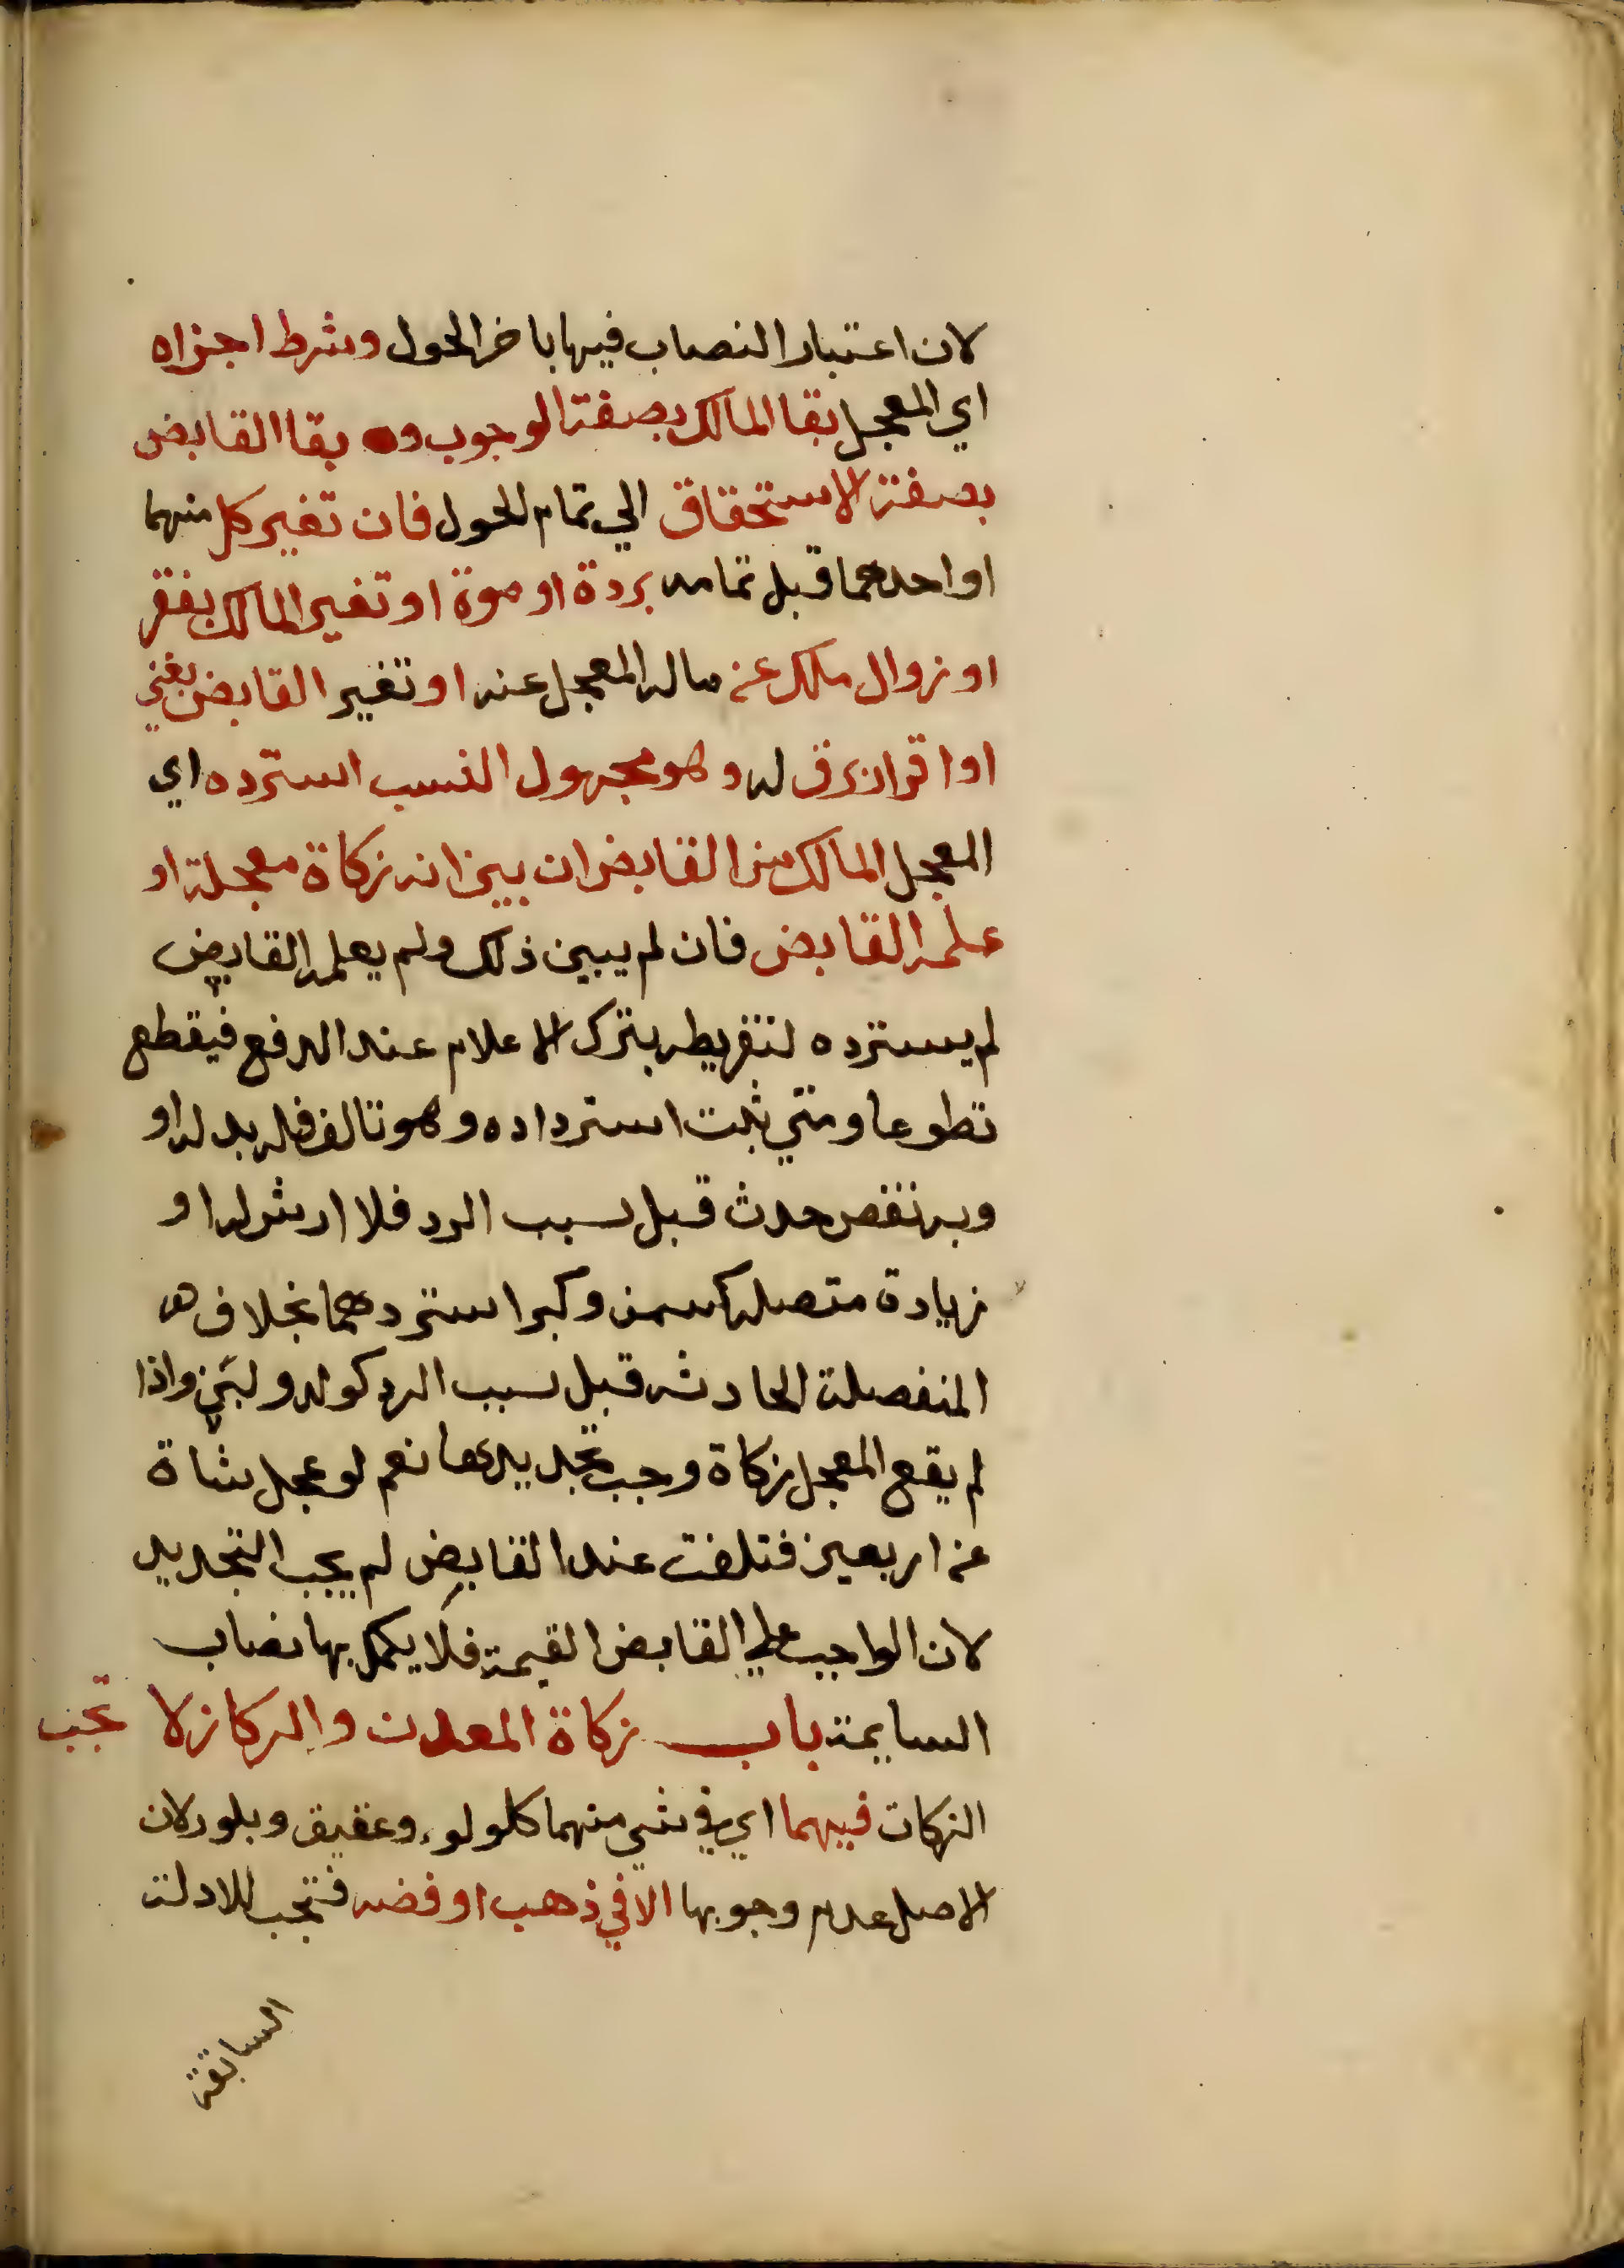 لان اعتبار النصاب فيها باخر الحول وشرط اجزاه
اي المعجل بقا المالك بصفة الوجوب و بقا القابض
بصفة الاستحقاق الي تمام الحول فان تغير كل منهما
او احدهما قبل تمامه بردة او موة او تغير المالك بفقر
او زوال ملكه عن ماله المعجل عنه او تغير القابض بغني
او اقرار برق له وهو مجهول النسب استرده اي
المعجل المالك من القابض ان بين انه زكاة معجلة او
علمه القابض فان لم يبين ذلك ولم يعلمه القابض
لم يسترده لتفريطه بترك الاعلام عند الدفع فيقطع
تطوعا ومتي ثبت استرداده وهو تالف فله بدله او
وبه نقص حدث قبل سبب الرد فلا ارش له او
زيادة متصله كسمن وكبر استردهما بخلاف هـ
المنفصلة الحادثه قبل سبب الرد كولد ولبن واذا
لم يقع المعجل زكاة وجب تجديدها نعم لو عجل شاة
عن اربعين فتلفت عند القابض لم يجب التجديد
لان الواجب علي القابض القيمة فلا يكمل بها نصاب
السايمة باب زكاة المعدن والركاز لا تجب
الزكات فيهما اي في شي منهما كلولوء وعقيق وبلور لان
الاصل عدم وجوبها الا في ذهب او فضه فتجب للادلة
السابقة